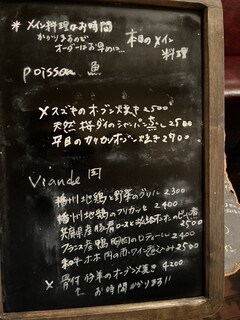 ※ メイン料理はお時間
かかりますので
オーダーはお早めに…
本日のメイン
料理
poisson 魚
×スズキのオーブン焼き 2500
天然桜ダイのシャンパン蒸し 2500
平目のカリカリオーブン焼き 2700
Viande 肉
播州地鶏と野菜のグリル 2300
播州地鶏のフリカッセ 2400
兵庫県産豚肩ロースと 2500
フランス産鴨胸肉のロティー 2400
和牛ホホ肉の赤ワイン煮込み 2500
× 骨付仔羊のオーブン焼き 4200
↑ お時間かかります!!